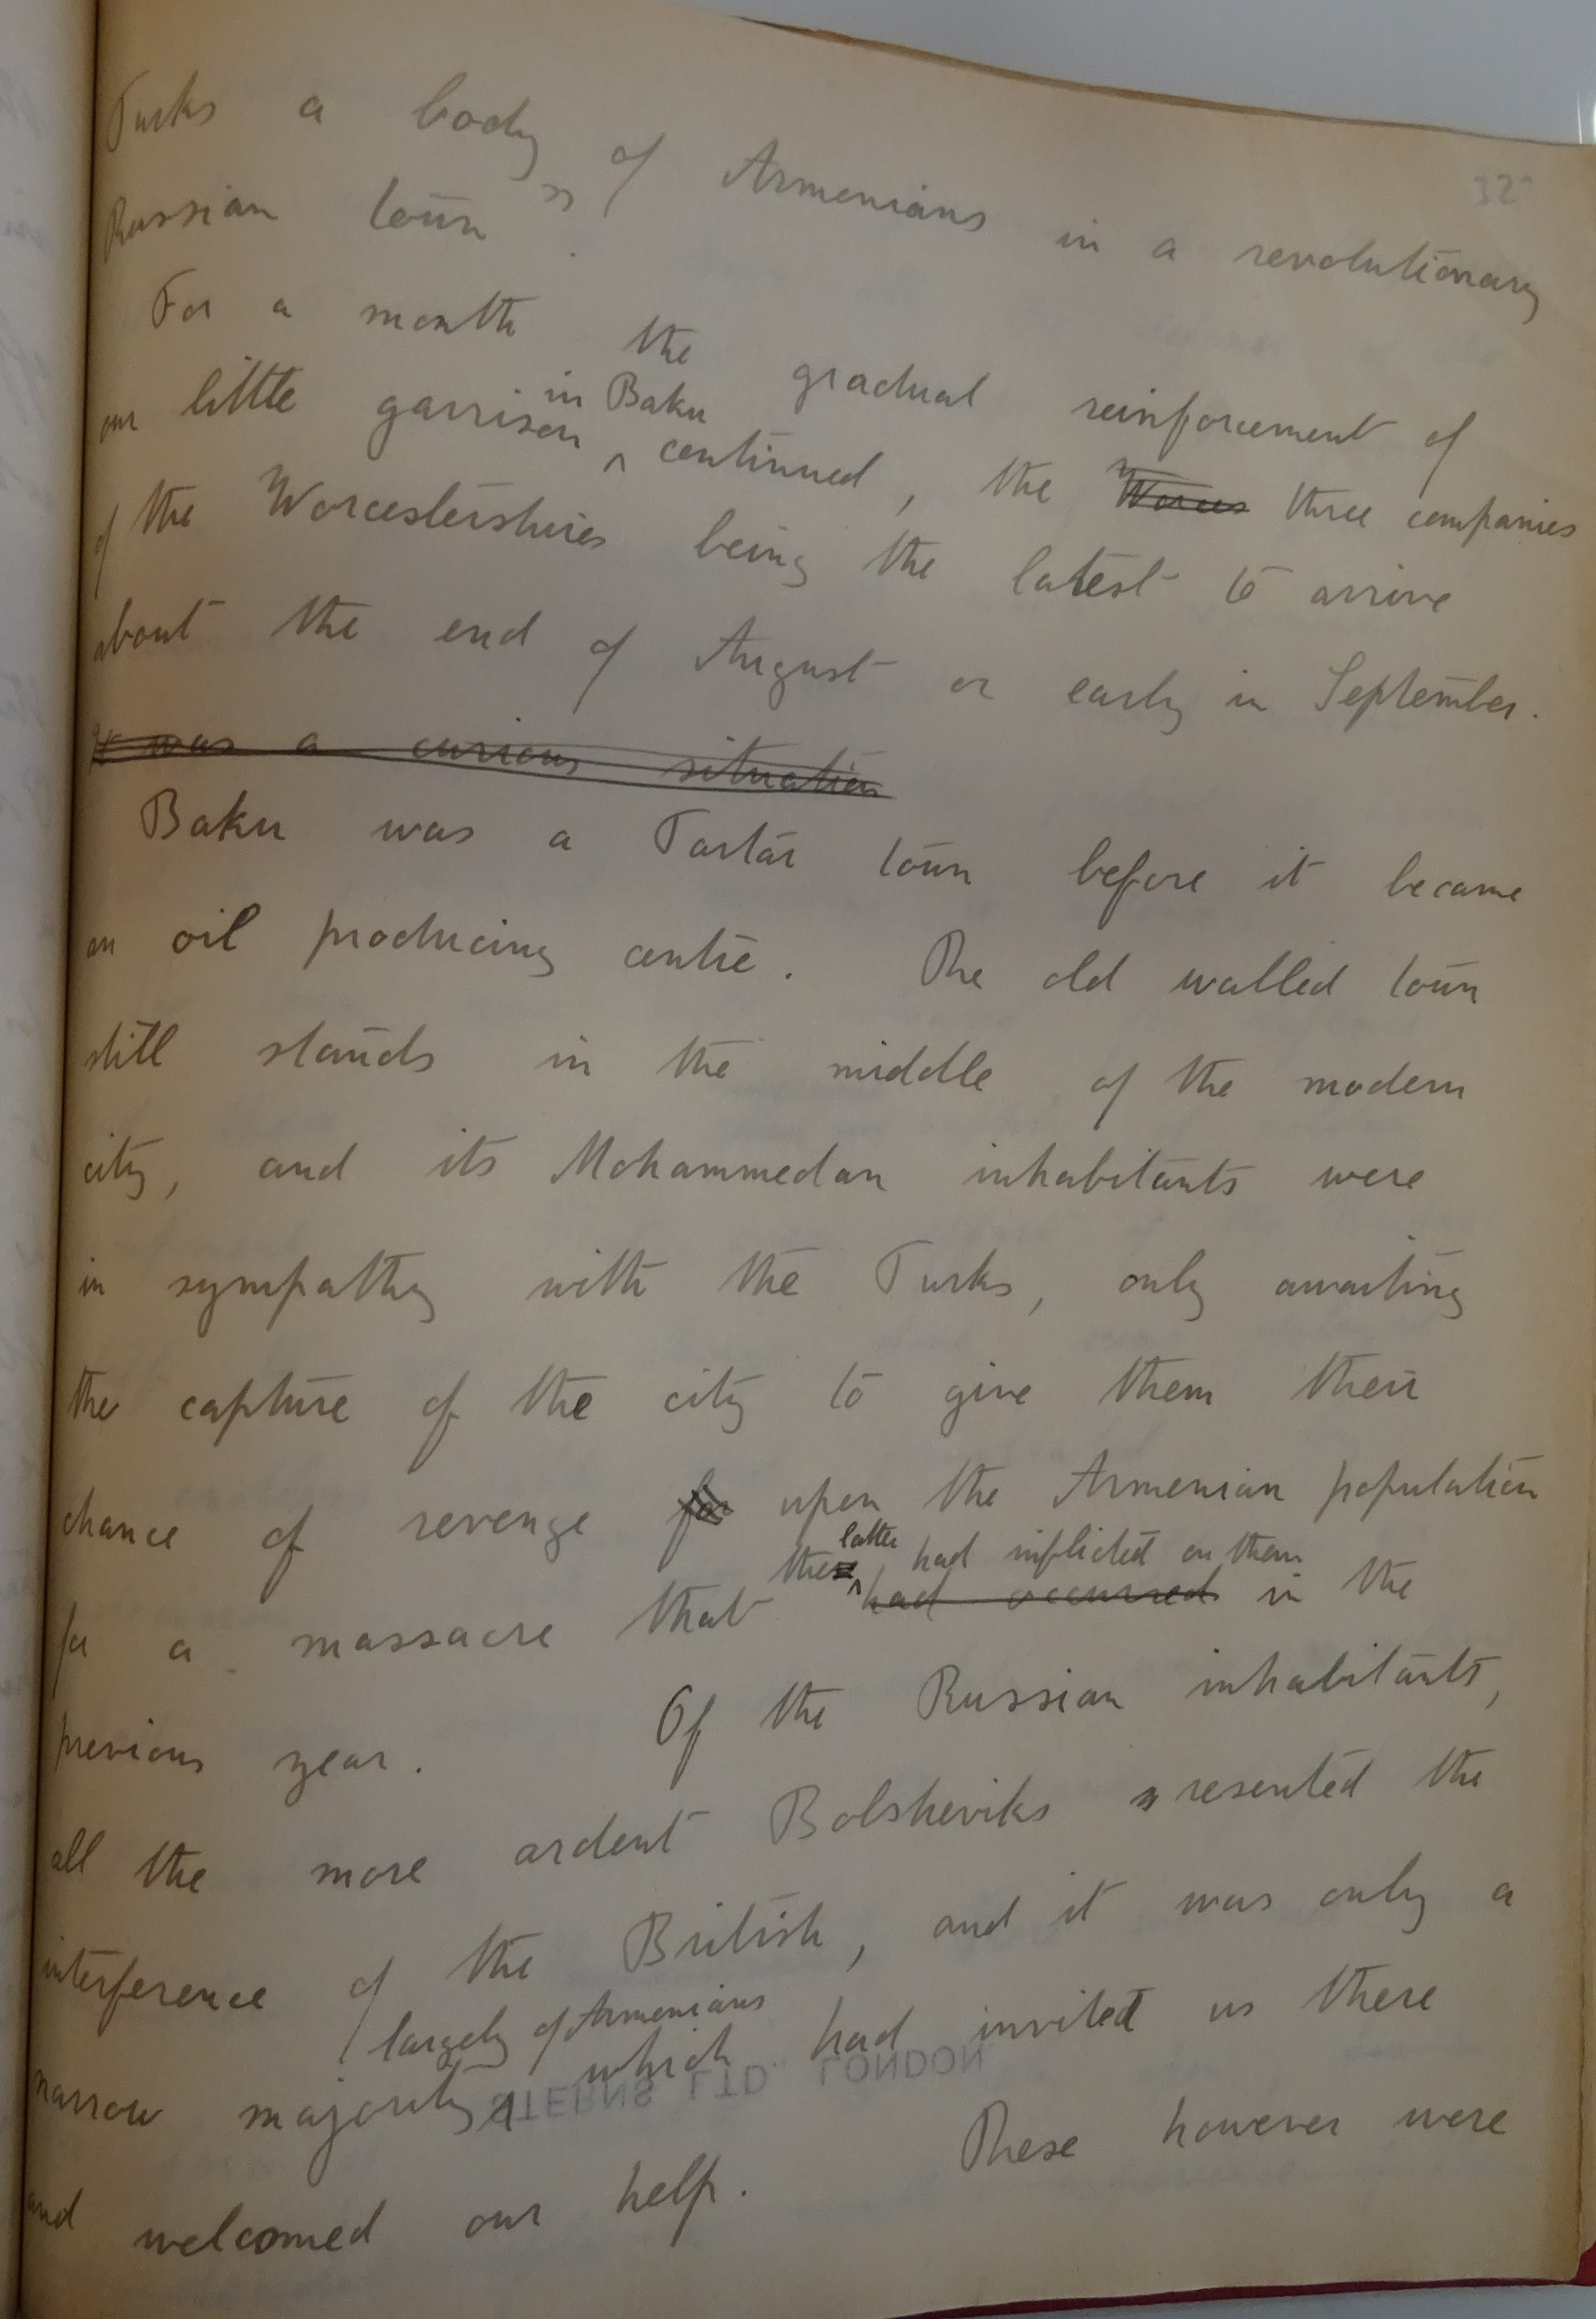 32
Turks a body of Armenians in a revolutionary
Russian town".
For a month the gradual reinforcement of
our little garrison in Baku continued, the Worces three companies
of the Worcestershires being the latest to arrive
about the end of August or early in September.
It was a curious situation
Baku was a Tartar town before it became
an oil producing centre. The old walled town
still stands in the middle of the modern
city, and its Mohammedan inhabitants were
in sympathy with the Turks, only awaiting
the capture of the city to give them their
chance of revenge for upon the Armenian population
for a massacre that the latter had inflicted on them had occurred in the
previous year. Of the Russian inhabitants,
all the more ardent Bolsheviks resented the
interference of the British, and it was only a
narrow majority largely of Armenians which had invited us there
and welcomed our help. These however were
STERNS LTD LONDON